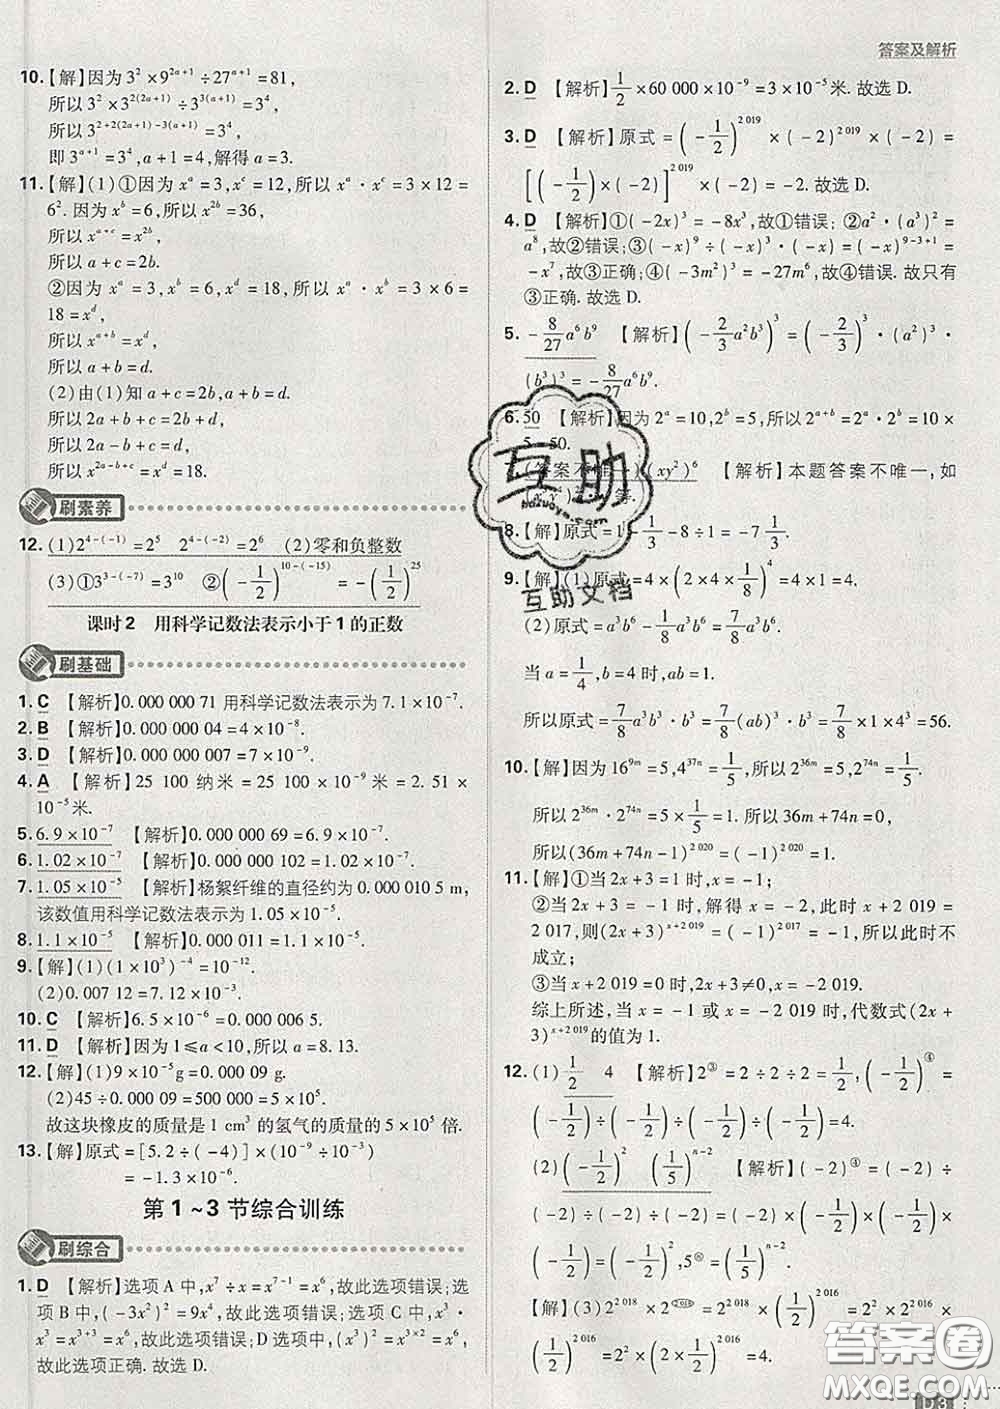 答案及解析
10.【解】因为 3²×9^{2a+1}÷27^{a+1}=81,
所以 3²×3^{2(2a+1)}÷3^{3(a+1)}=3⁴,
所以 3^{2+2(2a+1)-3(a+1)}=3⁴,
即 3^{a+1}=3⁴,a+1=4,解得 a=3.
11.【解】(1)①因为 x^a=3,x^c=12,所以 x^a·x^c=3×12=
6². 因为 x^b=6,所以 x^{2b}=36,
所以 x^{a+c}=x^{2b},
所以 a+c=2b.
②因为 x^a=3,x^b=6,所以 x^a·x^b=3×6=
18=x^d,
所以 x^{a+b}=x^d,
所以 a+b=d.
(2)由(1)知 a+c=2b,a+b=d.
所以 2a+b+c=2b+d,
所以 2a-b+c=d,
所以 x^{2a-b+c}=x^d=18.
刷素养
12.(1)2^{4-(-1)}=2⁵ 2^{4-(-2)}=2⁶ (2)零和负整数
(3)①3^{3-(-7)}=3^{10} ②(-1/2)^{10-(-15)}=(-1/2)^{25}
课时2 用科学记数法表示小于1的正数
刷基础
1. C 【解析】0.000 000 71 用科学记数法表示为 7.1×10^{-7}.
2. B 【解析】0.000 000 04=4×10^{-8}.
3. D 【解析】0.000 000 007=7×10^{-9}.
4. A 【解析】25 100 纳米=25 100×10^{-9}米=2.51×
10^{-5}米.
5. 6.9×10^{-7} 【解析】0.000 000 69=6.9×10^{-7}.
6. 1.02×10^{-7} 【解析】0.000 000 102=1.02×10^{-7}.
7. 1.05×10^{-5} 【解析】杨絮纤维的直径约为 0.000 010 5 m,
该数值用科学记数法表示为 1.05×10^{-5}.
8. 1.1×10^{-5} 【解析】0.000 011=1.1×10^{-5}.
9.【解】(1)(1×10³)^{-4}=10^{-12}.
(2)0.007 12=7.12×10^{-3}.
10. C 【解析】6.5×10^{-6}=0.000 006 5.
11. D 【解析】因为 1≤a<10,所以 a=8.13.
12.【解】(1)9×10^{-5}g=0.000 09 g.
(2)45÷0.000 09=500 000=5×10⁵.
故这块橡皮的质量是 1 cm³的氢气的质量的 5×10⁵ 倍.
13.【解】原式=[5.2÷(-4)]×(10^{-9}÷10^{-3})
=-1.3×10^{-6}.
第1~3节综合训练
刷综合
1. D 【解析】选项 A 中,x⁷÷x=x^{7-1}=x⁶,故此选项错误;选
项 B 中,(-3x²)²=9x⁴,故此选项错误;选项 C 中,x³·
x³=x^{3+3}=x⁶,故此选项错误;D 选项中,(x³)²=x^{3×2}=x⁶,
故此选项正确. 故选 D.
2. D 【解析】1/2×60 000×10^{-9}=3×10^{-5}米. 故选 D.
3. D 【解析】原式=(-1/2)^{2 019}×(-2)^{2 019}×(-2)=
[(-1/2)×(-2)]^{2 019}×(-2)=-2. 故选 D.
4. D 【解析】①(-2x)³=-8x³,故①错误;②a²·(a³)²=
a⁸,故②错误;③(-x)⁹÷(-x)³·(-x)=(-x)^{9-3+1}=
-x⁷,故③正确;④(-3m²)³=-27m⁶,故④错误. 故只有
③正确. 故选 D.
5. -8/27 a⁶b⁹ 【解析】(-2/3 a²b³)³=(-2/3)³·(a²)³·
(b³)³=-8/27 a⁶b⁹.
6. 50 【解析】因为 2^a=10,2^b=5,所以 2^{a+b}=2^a·2^b=10×
5=50.
7. (答案不唯一)(xy²)⁶ 【解析】本题答案不唯一,如
等.
8.【解】原式=1-1/3-8÷1=-7 1/3.
9.【解】(1)原式=4×(2×4×1/8)⁴=4×1=4.
(2)原式=a³b⁶-1/8a³b⁶=7/8a³b⁶.
当 a=1/4,b=4 时,ab=1.
所以原式=7/8a³b³·b³=7/8(ab)³·b³=7/8×1×4³=56.
10.【解】因为 16^{9m}=5,4^{37n}=1/5,所以 2^{36m}=5,2^{74n}=1/5,
所以 2^{36m}·2^{74n}=5×1/5=1. 所以 36m+74n=0,
所以(36m+74n-1)^{2 020}=(-1)^{2 020}=1.
11.【解】①当 2x+3=1 时,x=-1;
②当 2x+3=-1 时,解得 x=-2,此时 x+2 019=
2 017,则(2x+3)^{x+2 019}=(-1)^{2 017}=-1,所以此时不
成立;
③当 x+2 019=0 时,2x+3≠0,x=-2 019.
综上所述,当 x=-1 或 x=-2 019 时,代数式(2x+
3)^{x+2 019}的值为 1.
12.(1)1/2 4 【解析】2^③=2÷2÷2=1/2,(-1/2)^④=
(-1/2)÷(-1/2)÷(-1/2)÷(-1/2)=4.
(2)(-1/2)² (1/5)^{n-2} 【解析】(-2)^④=(-2)÷
(-2)÷(-2)÷(-2)=(-2)×(-1/2)×(-1/2)×
(-1/2)=(-1/2)²,5^ⓝ=(1/5)^{n-2}.
【解】(3)2^{2 018}×2^{(2 018)}=2^{2 018}×(1/2)^{2 016}=2²×2^{2 016}×(1/2)^{2 016}
=2²×(2×1/2)^{2 016}=4.
互助
huzuoye.com
互助文档
答案圈
MXQE.COM
D3